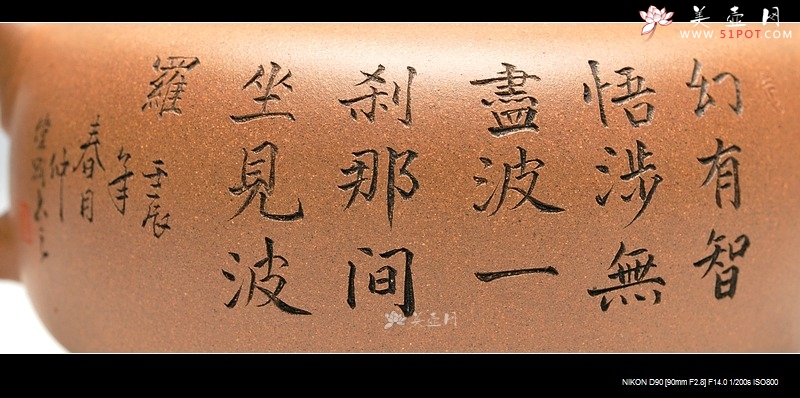 美壶网
WWW.51POT.COM
幻有智
悟涉無
盡波一
刹那间
坐見波
羅
壬辰
年
春月
仲
美壶网
NIKON D90 [90mm F2.8] F14.0 1/200s ISO800